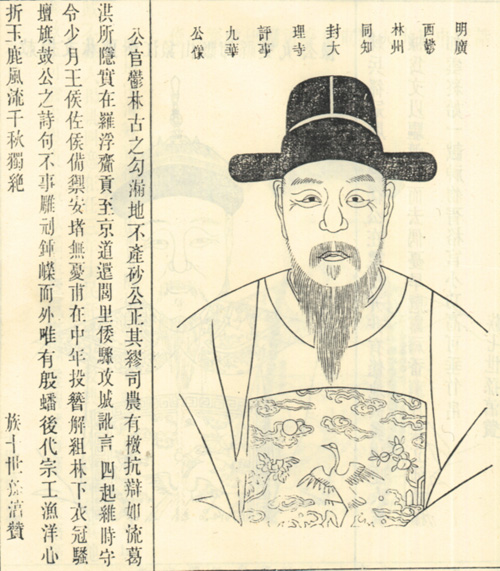 明廣
西鬱
林州
同知
封大
理寺
評事
九華
公像
公官鬱林古之勾漏地不產砂公正其繆司農有檄抗辯如流葛
洪所隱實在羅浮齎貢至京道還閭里倭驟攻城訛言四起維時守
令少月王侯佐侯備禦安堵無憂甫在中年投簪解組林下衣冠騷
壇旗鼓公之詩句不事雕刓鍾嶸而外唯有殷蟠後代宗工漁洋心
折玉鹿風流千秋獨絶
族十世孫贊